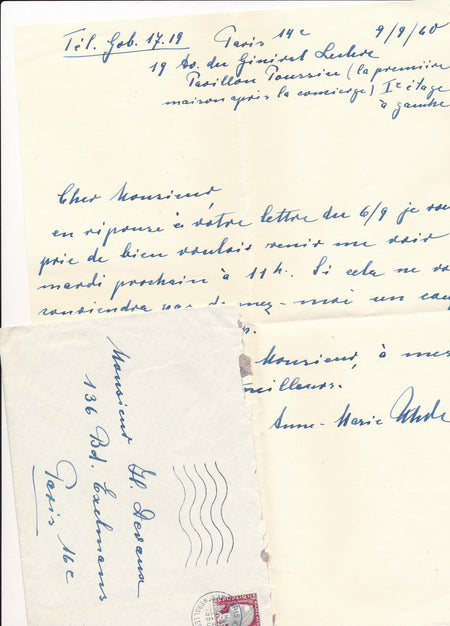 Tél. Gob. 17.19 Paris 14e 9/9/60
19 Av. du Général Leclerc
Pavillon Poussin (la première
maison après la concierge) Ie étage
à gauche
Cher Monsieur,
en réponse à votre lettre du 6/9 je vous
prie de bien vouloir venir me voir
mardi prochain à 11h. Si cela ne vous
conviendra pas donnez-moi un
Monsieur, à mes
meilleurs.
Anne-Marie Uhde
Monsieur H. Devaux
136 Bd. Exelmans
Paris 16e